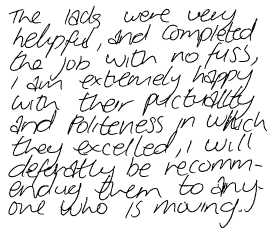 The lads were very
helpful, and completed
the job with no fuss,
I am extremely happy
with their puctuality
and Politeness in which
they excelled, i will
defenatly be recomm-
ending them to any-
one who is moving.